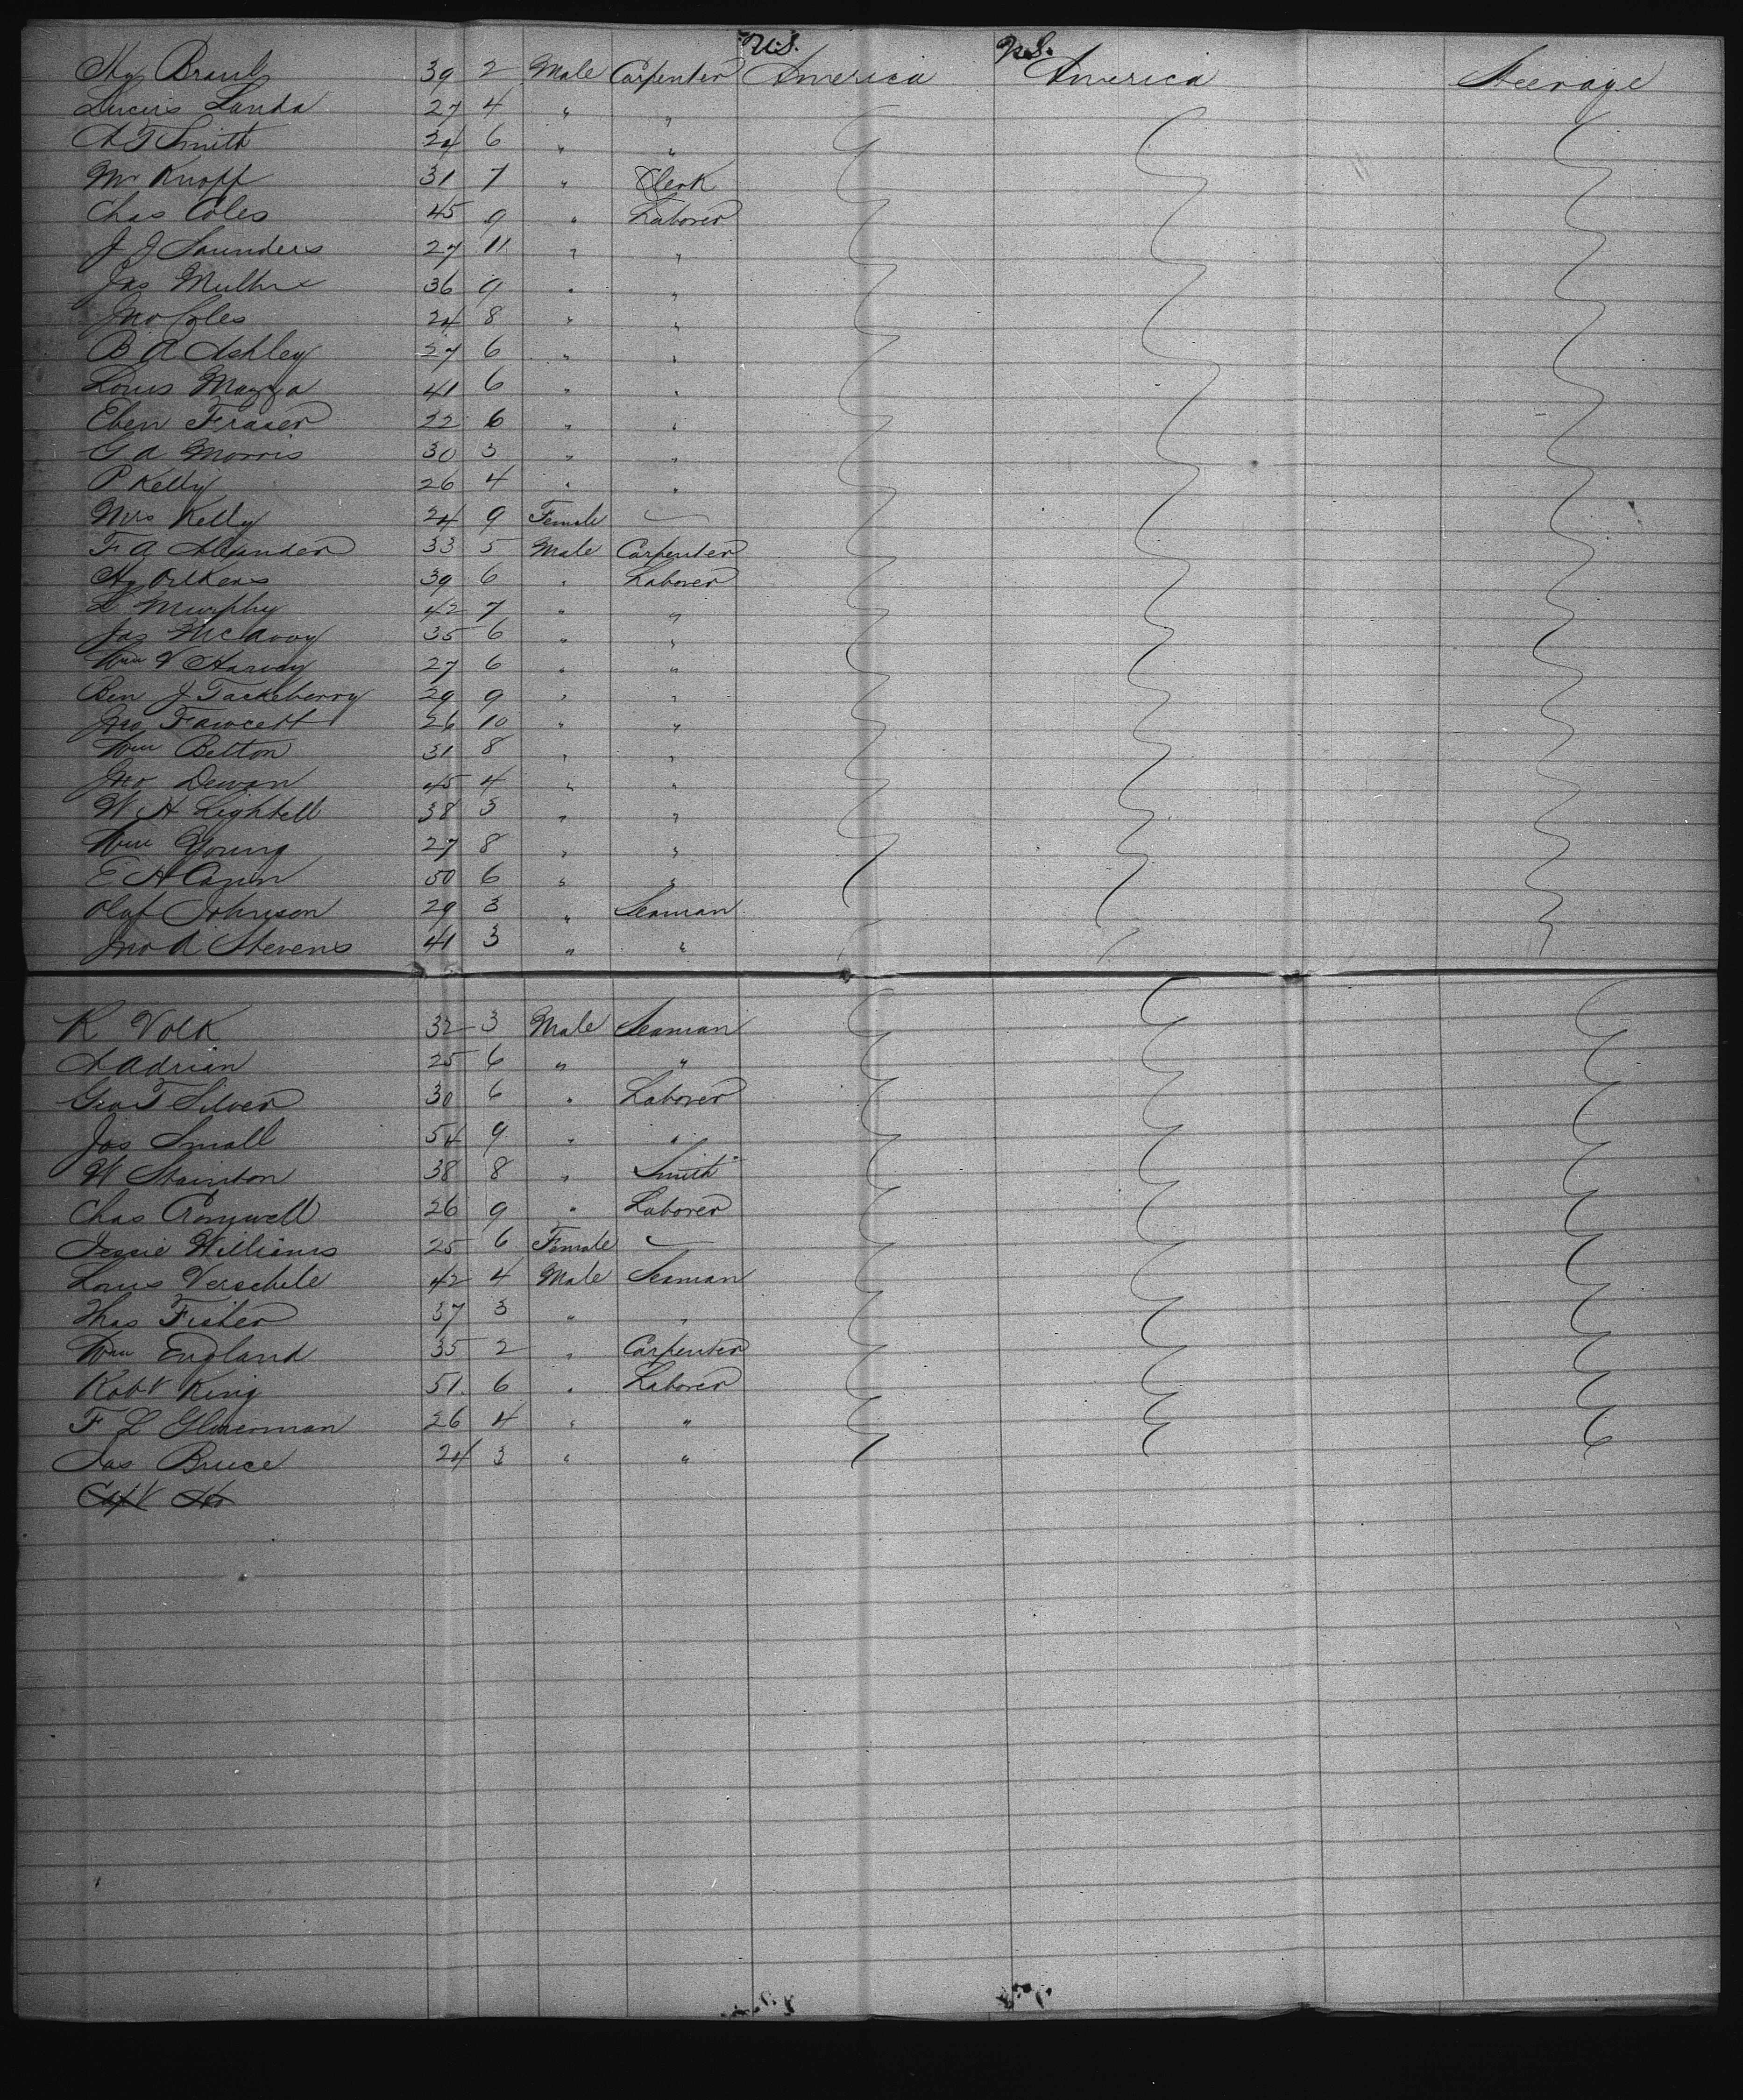 U.S. U.S.
Hy Braul 39 2 Male Carpenter America America Steerage
Lucius Landa 27 4 " "
A T Smith 24 6 " "
Mr Knopf 31 7 " Clerk
Chas Coles 45 9 " Laborer
J J Saunders 27 11 " "
Jas 36 9 " "
Jno Coles 24 8 " "
B A Ashley 27 6 " "
Louis Mazza 41 6 " "
Eben Fraser 22 6 " "
G A Morris 30 3 " "
P Kelly 26 4 " "
Mrs Kelly 24 9 Female —
F A 33 5 Male Carpenter
Hy 39 6 " Laborer
L Murphy 42 7 " "
Jas McAvoy 35 6 " "
Wm V Harvey 27 6 " "
Ben J Tackeberry 29 9 " "
Jno Fawcett 26 10 " "
Wm Belton 31 8 " "
Jno Dewan 45 4 " "
W H Lightell 38 5 " "
Wm Young 27 8 " "
E H Cann 50 6 " "
Olaf Johnson 29 3 " Seaman
Jno A Stevens 41 3 " "
K Volk 32 3 Male Seaman
A Adrian 25 6 " "
Geo T Silver 30 6 " Laborer
Jas Small 54 9 " "
W Stainton 38 8 " Smith
Chas Cromwell 26 9 " Laborer
Jessie Williams 25 6 Female —
Louis Verschile 42 4 Male Seaman
Thas Fisher 37 3 " "
Wm England 35 2 " Carpenter
Robt King 51 6 " Laborer
F L 26 4 " "
Jas Bruce 24 3 " "
Capt